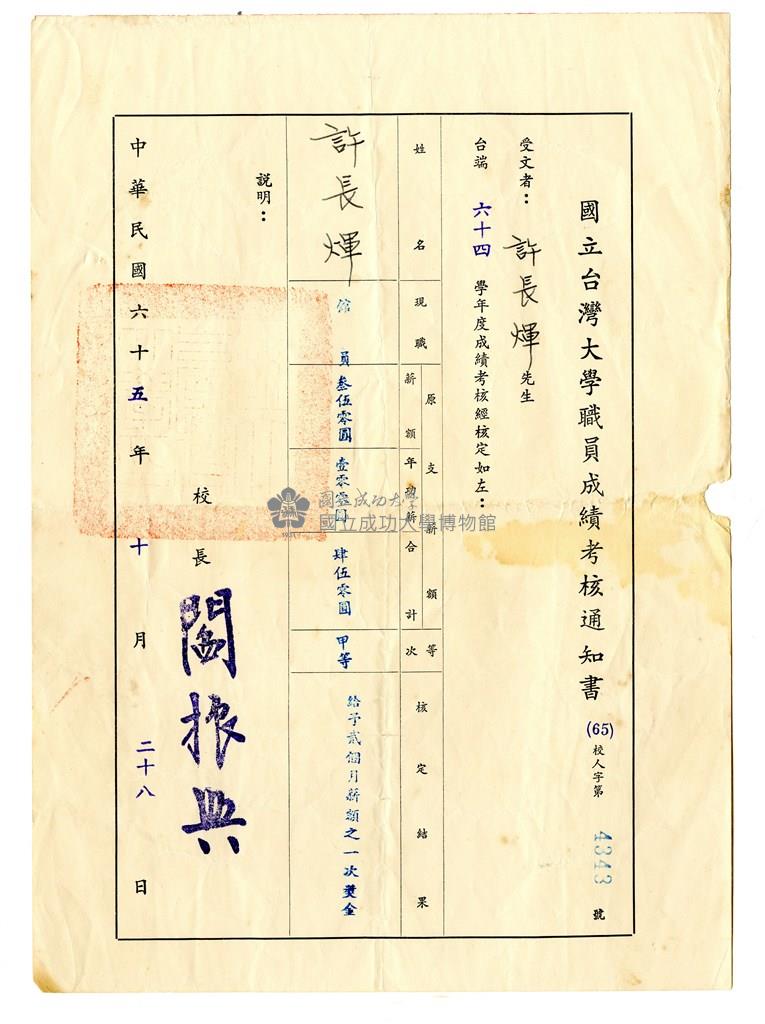 國立台灣大學職員成績考核通知書 (65)校人字第 4343 號
受文者：許長煇先生
台端 六十四 學年度成績考核經核定如左：
姓名
現職
原支薪額
薪額
年功薪
合計
等次
核定結果
許長煇
館員
叁伍零圓
壹零零圓
肆伍零圓
甲等
給予貳個月薪額之一次獎金
說明：
校長 閻振興
中華民國六十五年十月二十八日
國立成功大學
國立成功大學博物館